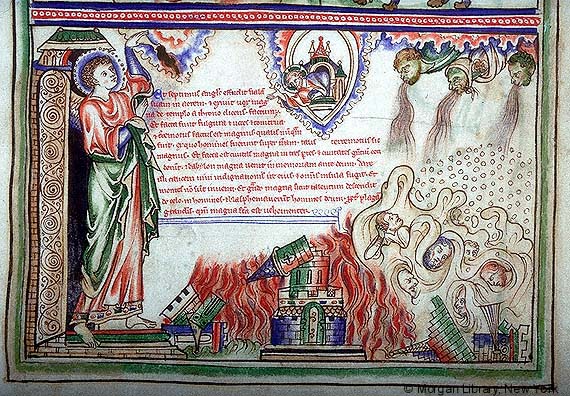 Et septimus angelus effudit fiala
suam in aerem. et exivit vox mag
na de templo a throno dicens. factum e.
Et facta sunt fulgura et voces et tonitrua
et terremotus factus est magnus qualis nunqm
fuit. ex quo homines fuerunt super terram. talis terremotus sic
magnus. Et facta est civitas magna in tres ptes. et civitates gentiu ceci
derunt. babylon magna venit in memoriam ante deum. dare
illi calicem vini indignationis ire eius. et omnis insula fugit. Et
montes non st inventi. Et grando magna sicut talentum descendit
de celo in homines. et blasphemaverunt homines deum. propt plagā
grandinis. qm magna fca est vehementer.
© Morgan Library, New York